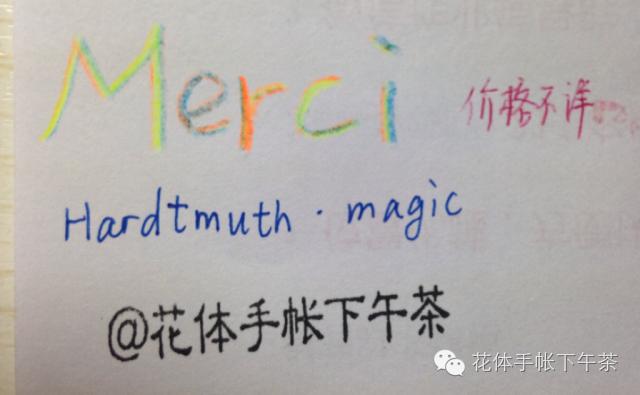 Merci 价格不详
Hardtmuth · magic
@花体手帐下午茶
花体手帐下午茶